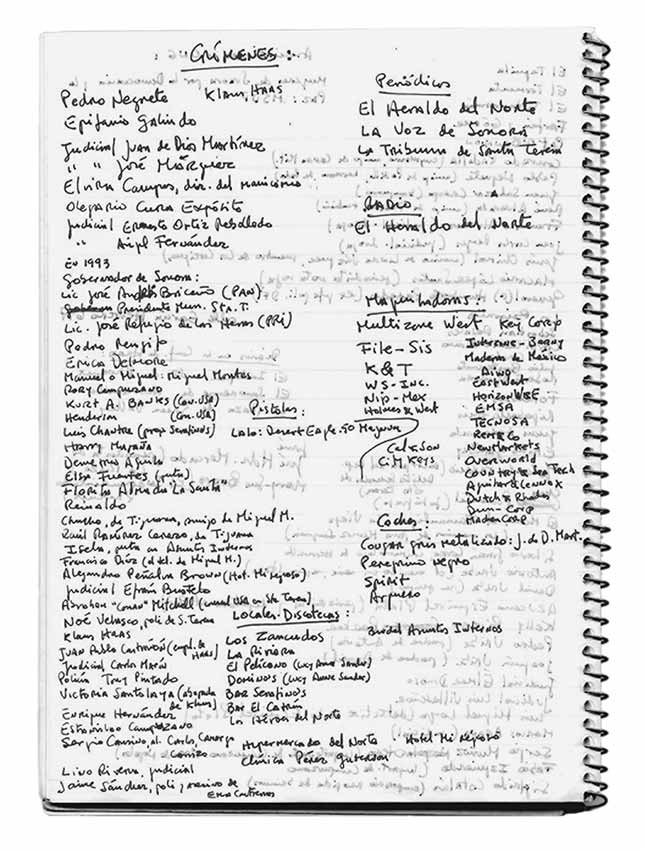 CRÍMENES:
Pedro Negrete Klaus HAAS
Epifanio Galindo
Judicial Juan de Dios Martínez
" " José Márquez
Elvira Campos, dir. del manicomio
Olegario Cura Expósito
Judicial Ernesto Ortiz Rebolledo
" Angel Fernández
En 1993
Gobernador de Sonora:
Lic José Andrés Briceño (PAN)
Presidente Mun. Sta. T.
Lic. José Refugio de las Heras (PRI)
Pedro Rengifo
Erica Delmore
Manuel o Miguel: Miguel Montes
Rory Campuzano
Kurt A. BANKS (Con. USA)
Henderson (Con. USA)
Luis Chantre (prop Serafino's)
Harry Magaña
Demetrio Águila
Elsa Fuentes (puta)
Florita Almada "La Santa"
Reinaldo
Chucho, de Tijuana, amigo de Miguel M.
Raúl Ramírez Cerezo, de Tijuana
Isela, puta en Asuntos Internos
Francisco Díaz (el tel. de Miguel M.)
Alejandro Peñalva Brown (Hot. Mi reposo)
Judicial Efraín Bustelo
Abraham "Conan" Mitchell (consul USA en Sta. Teresa)
Noé Velasco, poli de S. Teresa
Klaus HAAS
JUAN Pablo Castañón (empl. de Haas)
Judicial Carlos Marín
Policía Tony Pintado
Victoria Santolaya (abogada de Klaus)
Enrique Hernández
Estanislao Campuzano
Sergio Cansino, al. Carlos, Camargo
Carrizo
Lino Rivera, judicial
Jaime Sánchez, poli y asesino de
Erica Contreras
Periódicos
El Heraldo del Norte
LA Voz de Sonora
La Tribuna de Santa Teresa
RADIO
El Heraldo del Norte
Maquiladoras:
Multizone West Key Corp
File-Sis Interzone-Berny
K&T Maderas de México
WS-INC. Aiwo
Nip-Mex EastWest
Holmes & West HorizonW&E
EMSA
TECNOSA
Rem&Co
Cal&Son NewMarkets
CiMKeys Overworld
Country & Sea Tech
Aguilar & Lennox
Dutch & Rhodes
Dun-Corp
MachenCorp
Pistolas:
Lalo: Desert Eagle .50 Magnum
Coches:
Cougar gris metalizado: J. de D. Mart.
Peregrino negro
Spirit
Arquero
Locales-Discotecas:
Los Zancudos Burdel Asuntos Internos
LA Riviera
El Pelícano (Lucy Anne Sander)
Domino's (Lucy Anne Sander)
BAR Serafino's
Bar El Catrín
Los Héroes del Norte
Hipermercado del Norte Hotel Mi Reposo
Clínica Pérez Guterson